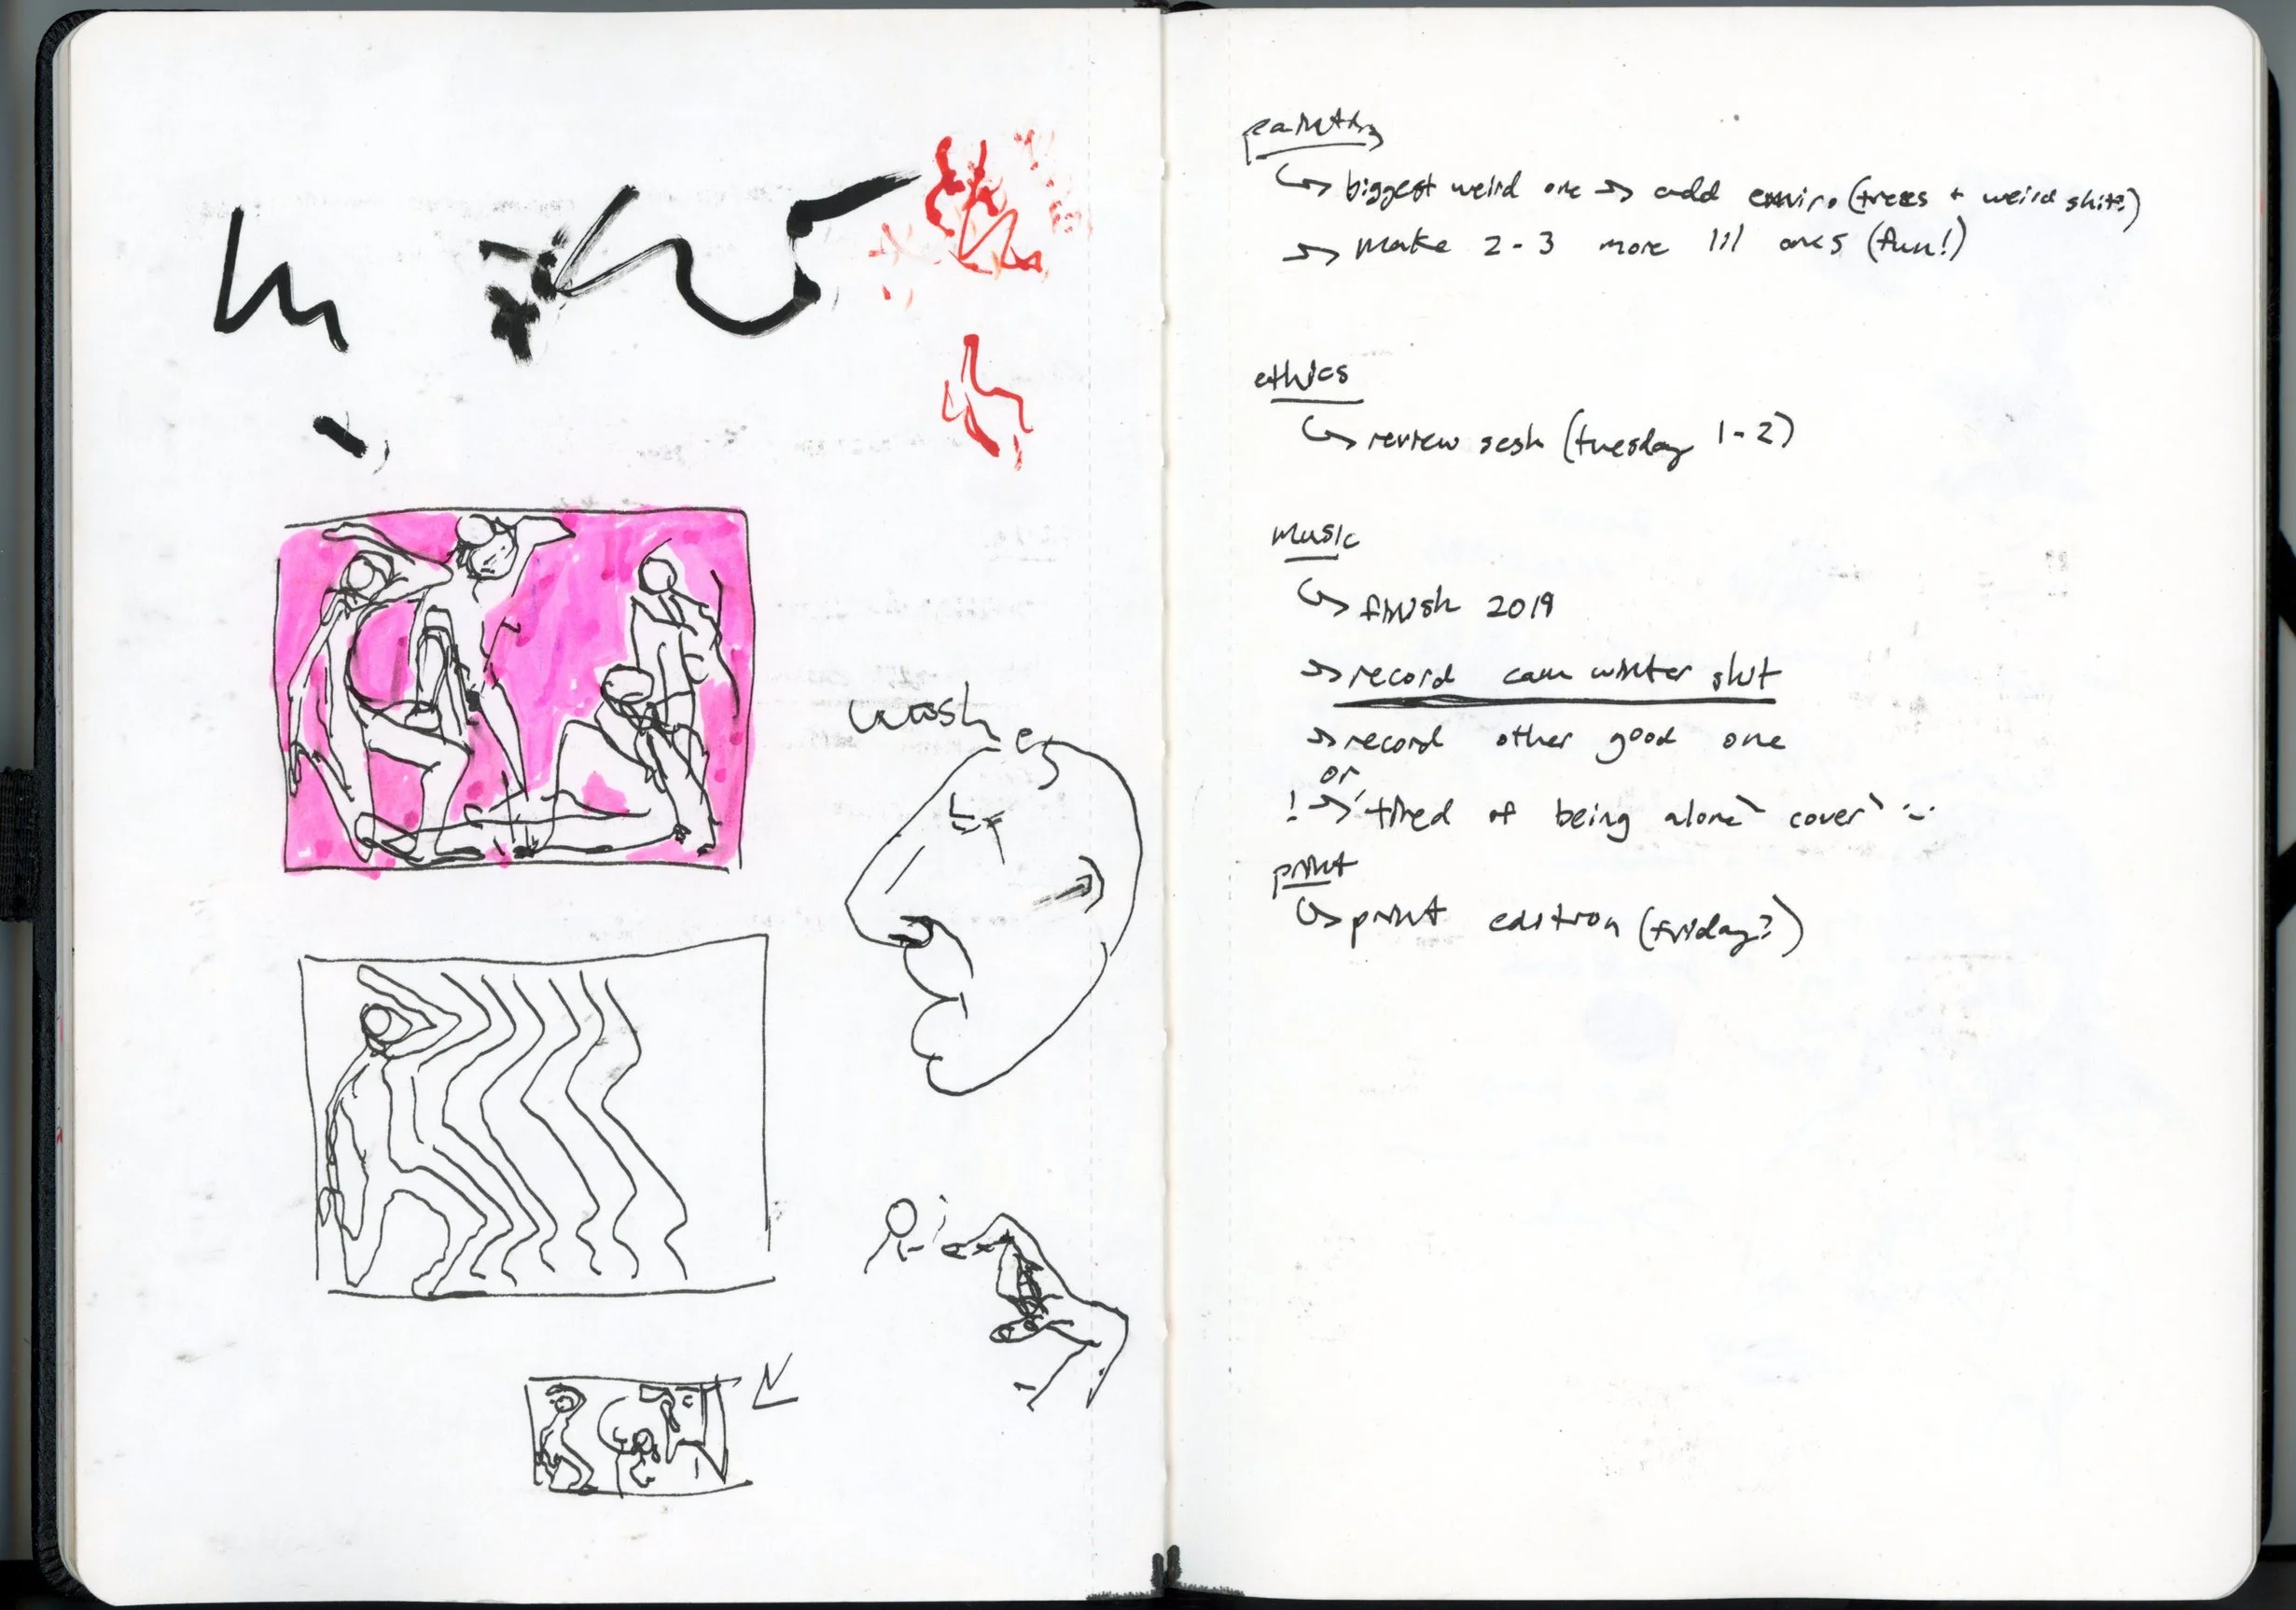 wash
painting
↳ biggest weird one → add enviro (trees + weird shit?)
→ make 2-3 more lil ones (fun!)
ethics
↳ review sesh (tuesday 1-2)
music
↳ finish 2019
→ record cam winter shit
→ record other good one
or
! → "tired of being alone" cover
print
↳ print edition (friday?)